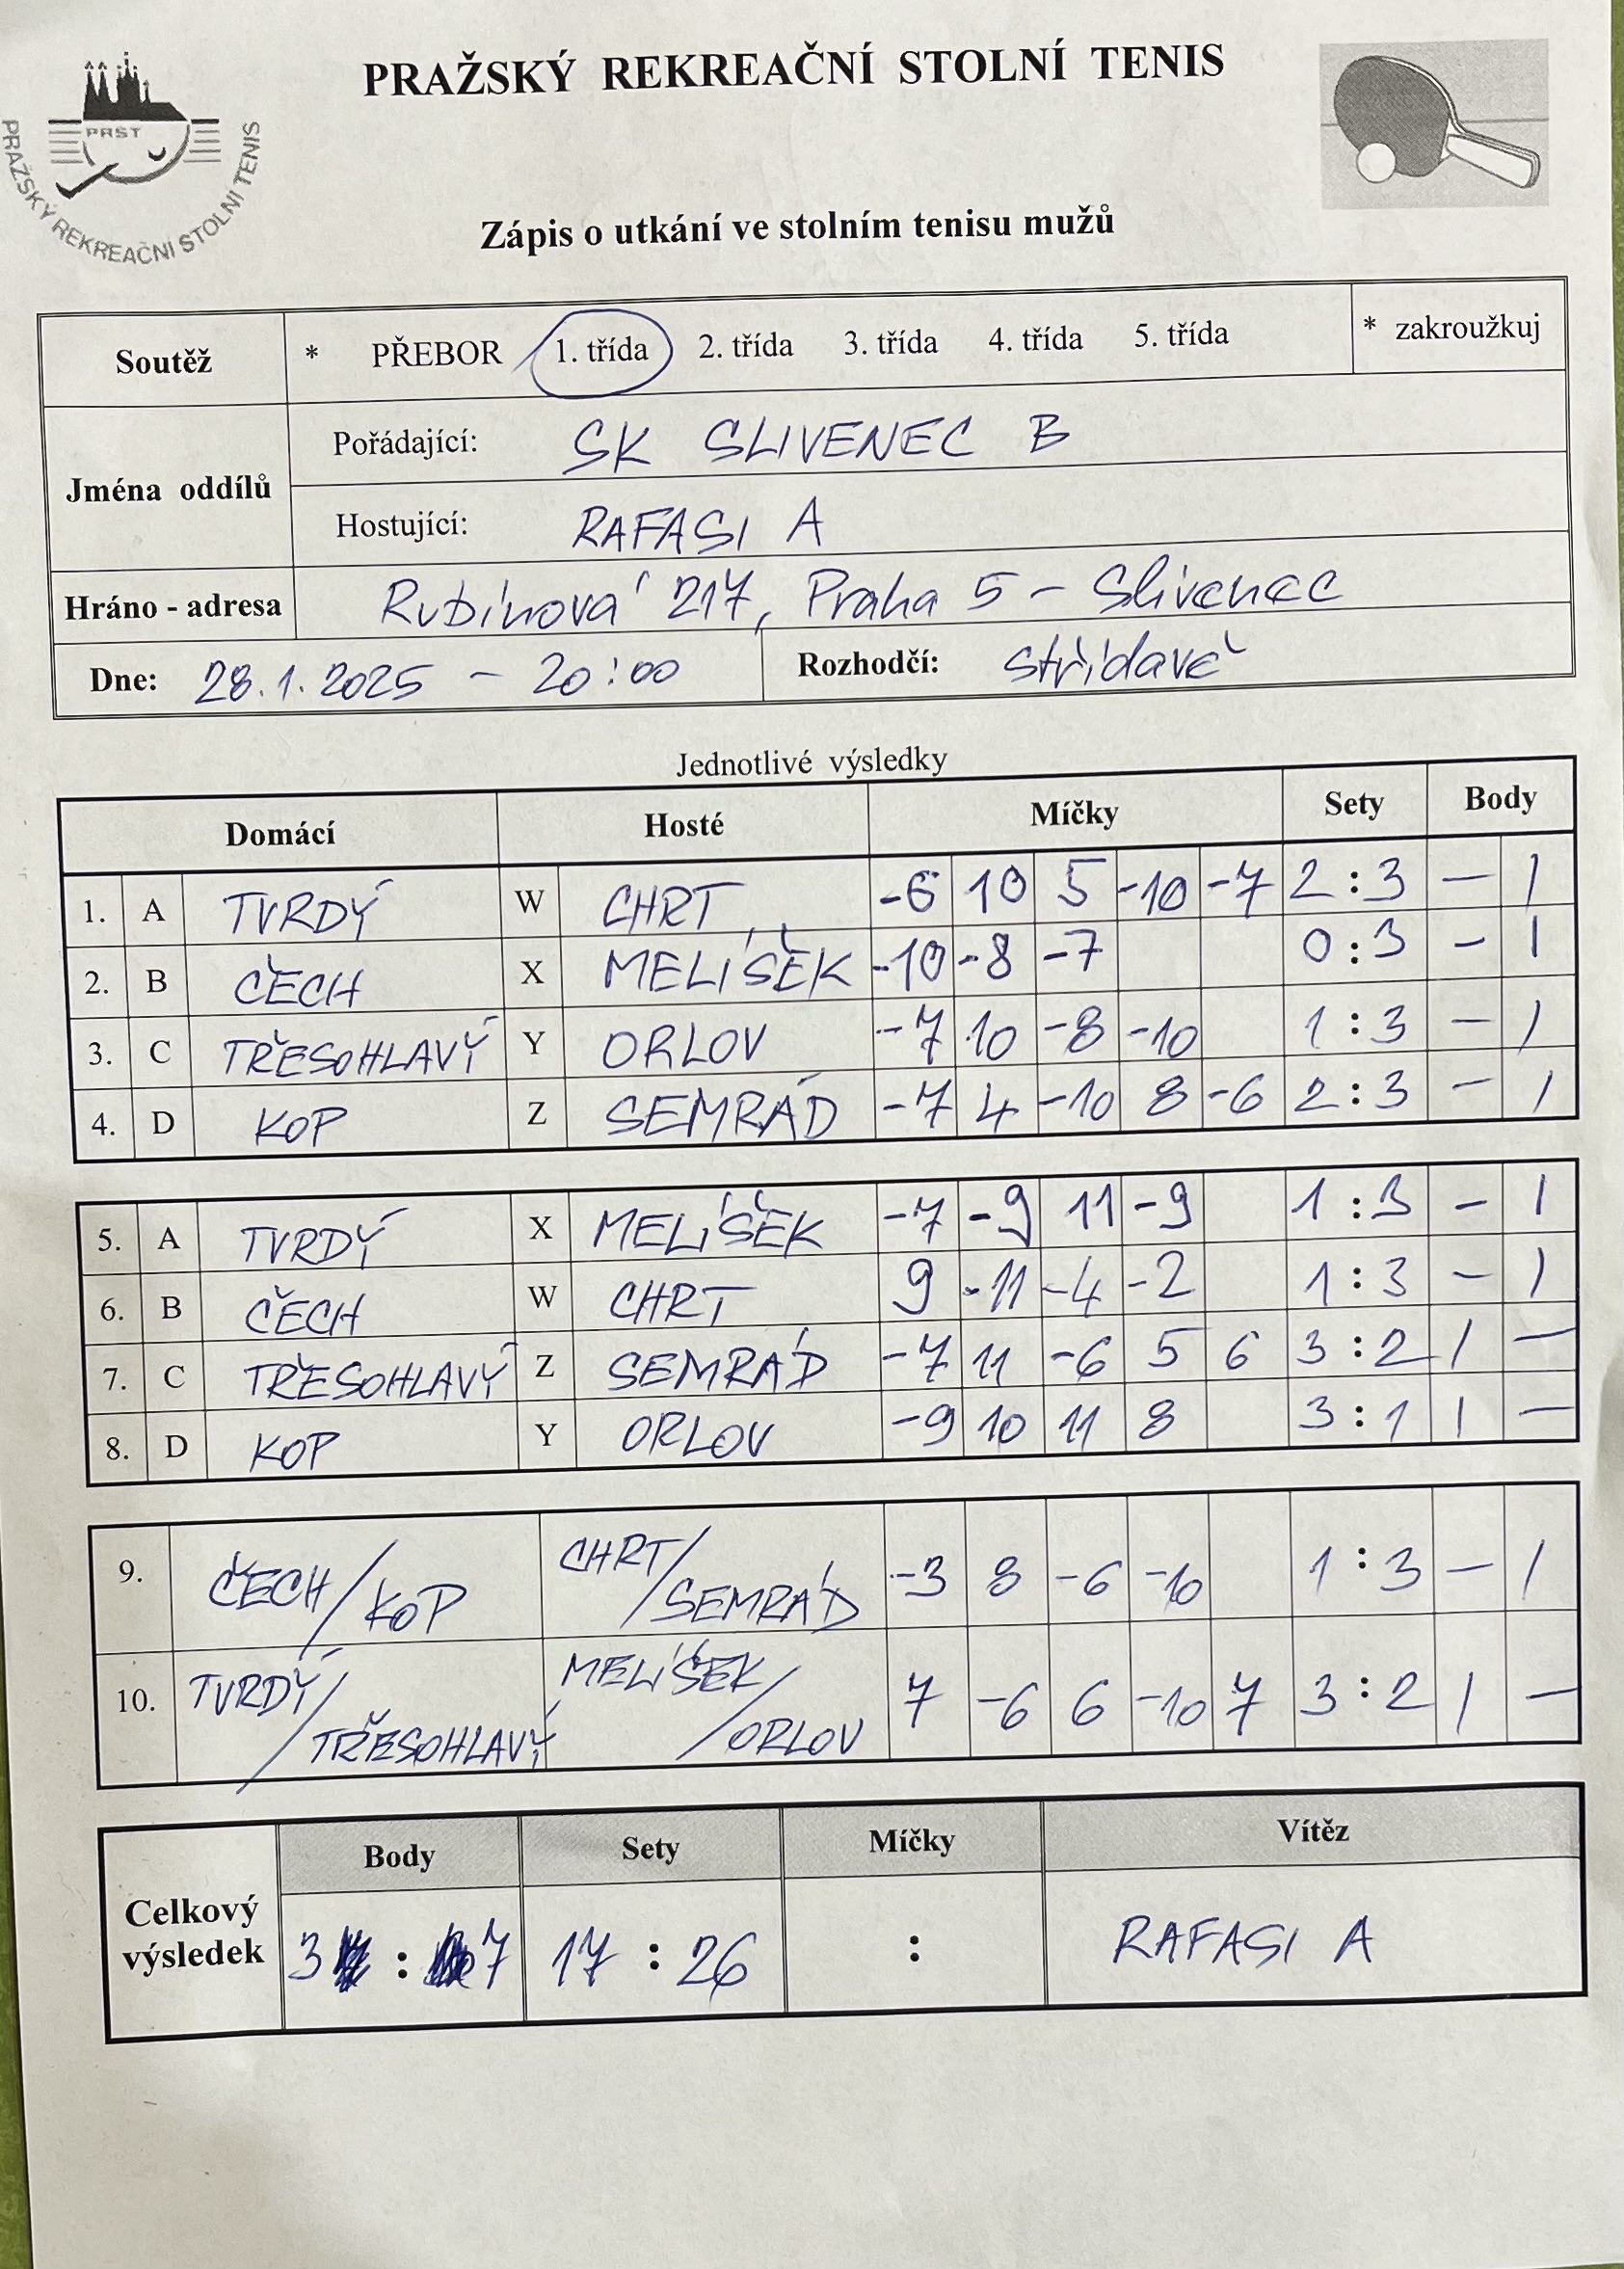 PRAŽSKÝ REKREAČNÍ STOLNÍ TENIS
PRST
PRAŽSKÝ REKREAČNÍ STOLNÍ TENIS
Zápis o utkání ve stolním tenisu mužů
Soutěž * PŘEBOR 1. třída 2. třída 3. třída 4. třída 5. třída * zakroužkuj
Jména oddílů
Pořádající: SK SLIVENEC B
Hostující: RAFASI A
Hráno - adresa Rubínová 217, Praha 5 - Slivenec
Dne: 28.1.2025 - 20:00 Rozhodčí: střídavě
Jednotlivé výsledky
Domácí Hosté Míčky Sety Body
1. A TVRDÝ W CHRT -6 10 5 -10 -7 2:3 - 1
2. B ČECH X MELÍŠEK -10 -8 -7 0:3 - 1
3. C TŘESOHLAVÝ Y ORLOV -7 10 -8 -10 1:3 - 1
4. D KOP Z SEMRÁD -7 4 -10 8 -6 2:3 - 1
5. A TVRDÝ X MELÍŠEK -7 -9 11 -9 1:3 - 1
6. B ČECH W CHRT 9 -11 -4 -2 1:3 - 1
7. C TŘESOHLAVÝ Z SEMRÁD -7 11 -6 5 6 3:2 1 -
8. D KOP Y ORLOV -9 10 11 8 3:1 1 -
9. ČECH/KOP CHRT/SEMRÁD -3 8 -6 -10 1:3 - 1
10. TVRDÝ/TŘESOHLAVÝ MELÍŠEK/ORLOV 7 -6 6 -10 7 3:2 1 -
Celkový výsledek
Body Sety Míčky Vítěz
3 : 7 17 : 26 : RAFASI A